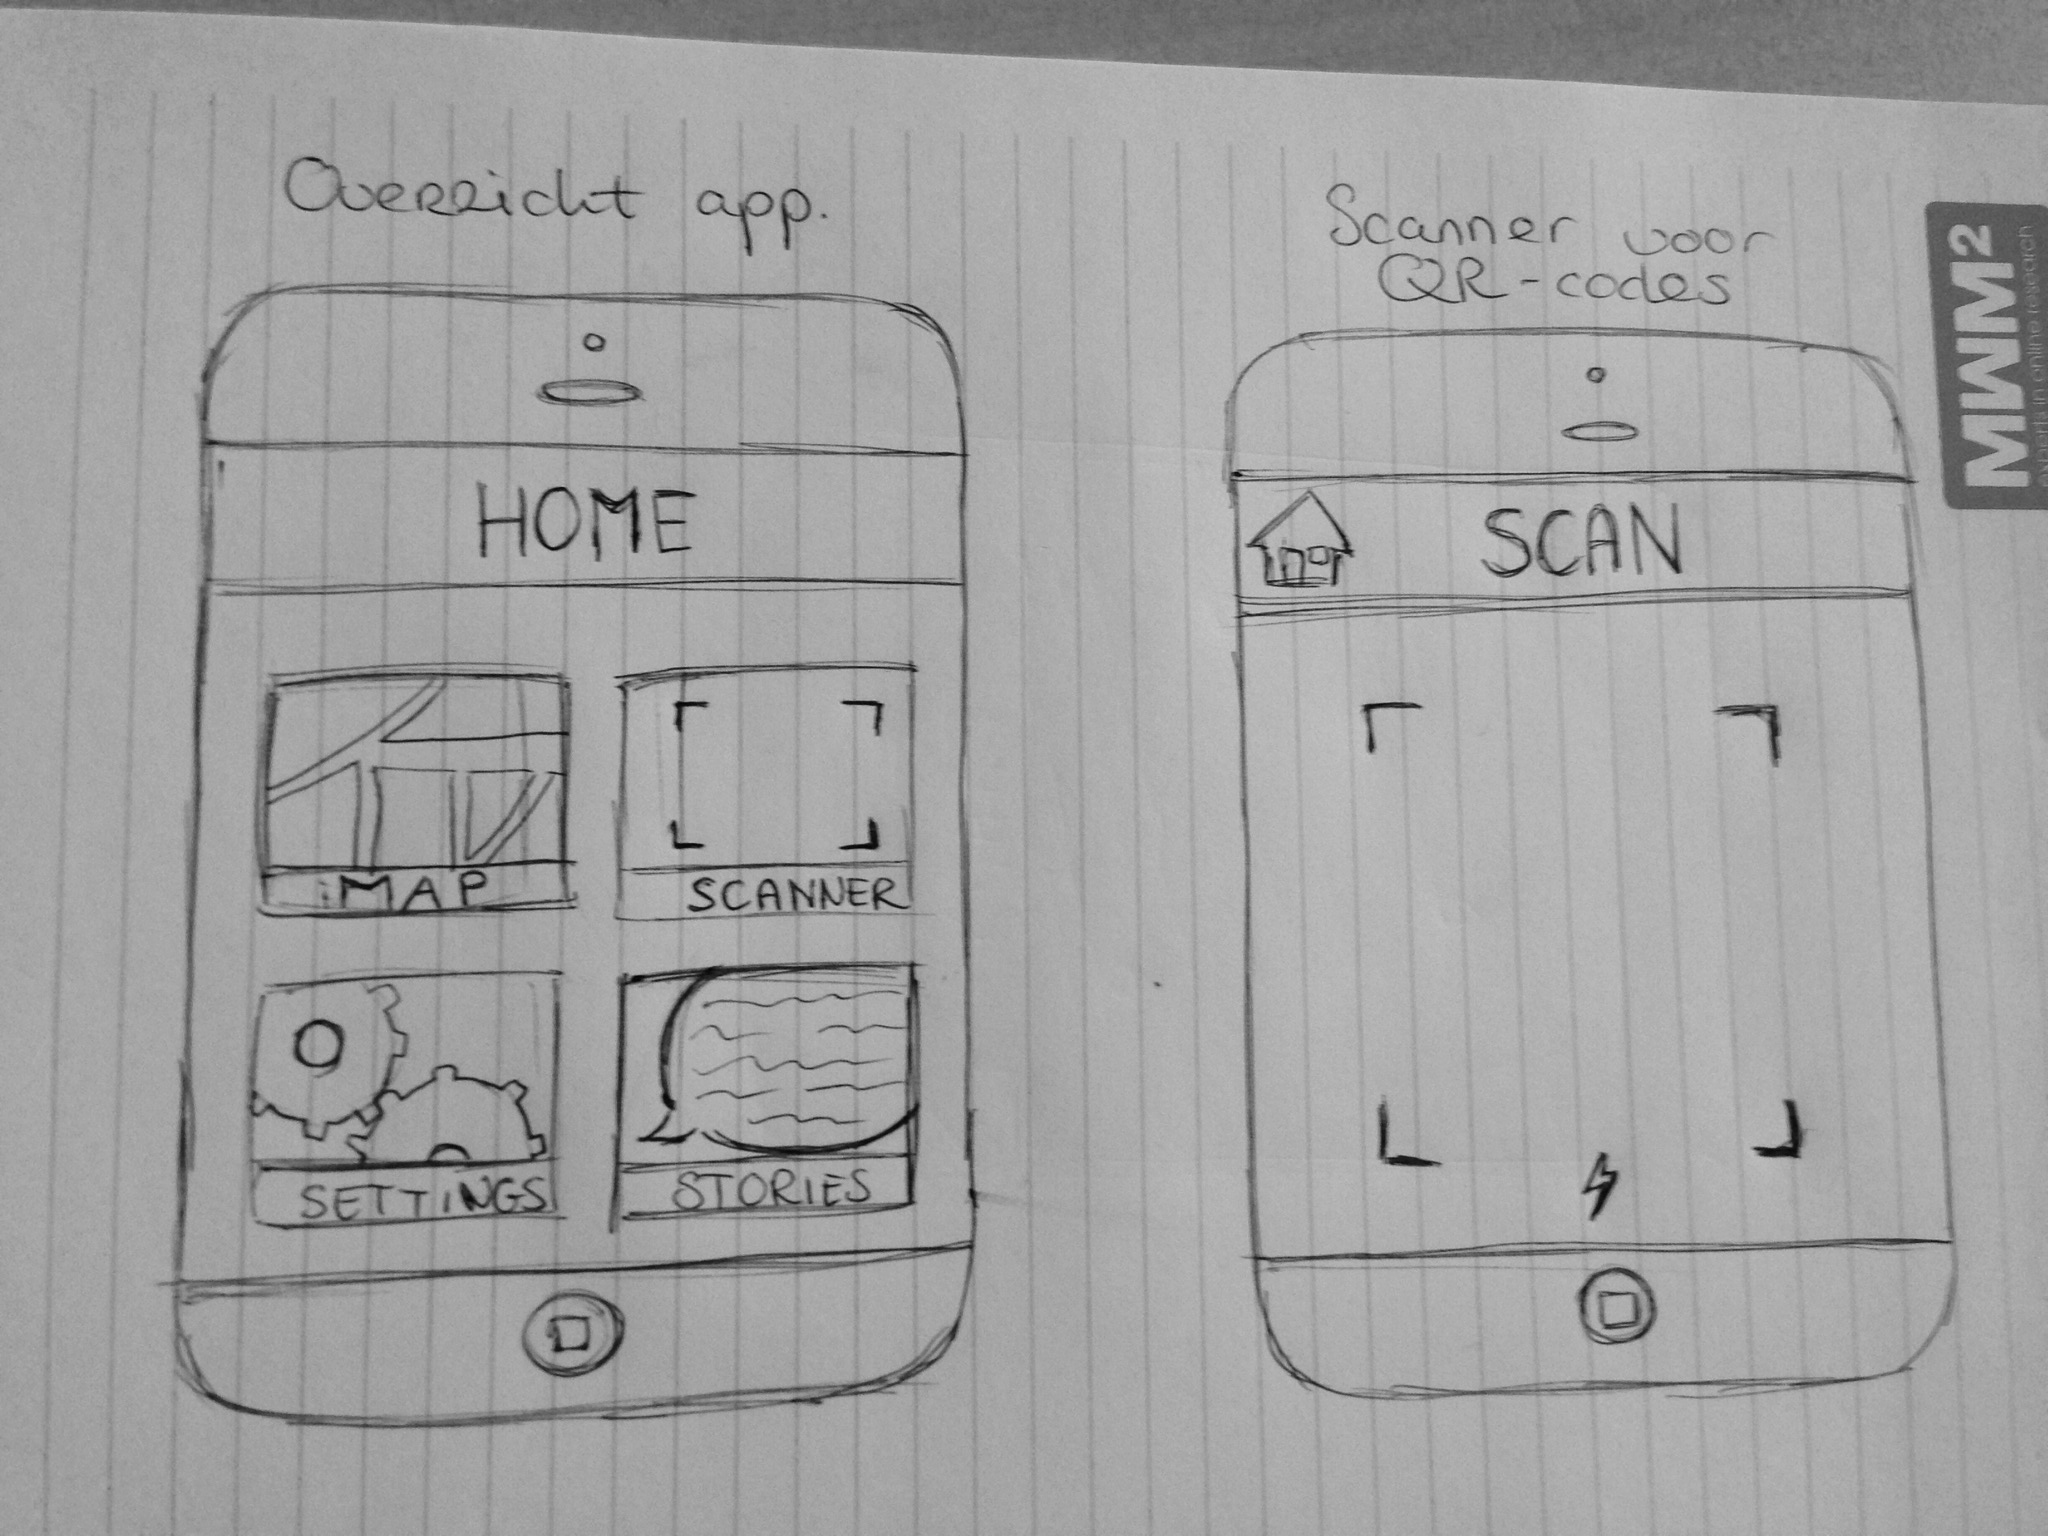 Overzicht app.
HOME
iMAP
SCANNER
SETTINGS
STORIES
Scanner voor
QR-codes
SCAN
MWM2
experts in online research